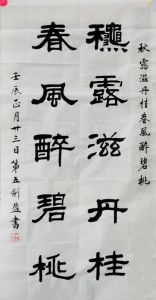 秋露滋丹桂春風醉碧桃
龝露滋丹桂
春風醉碧桃
壬辰正月廿三日第五劍盈書